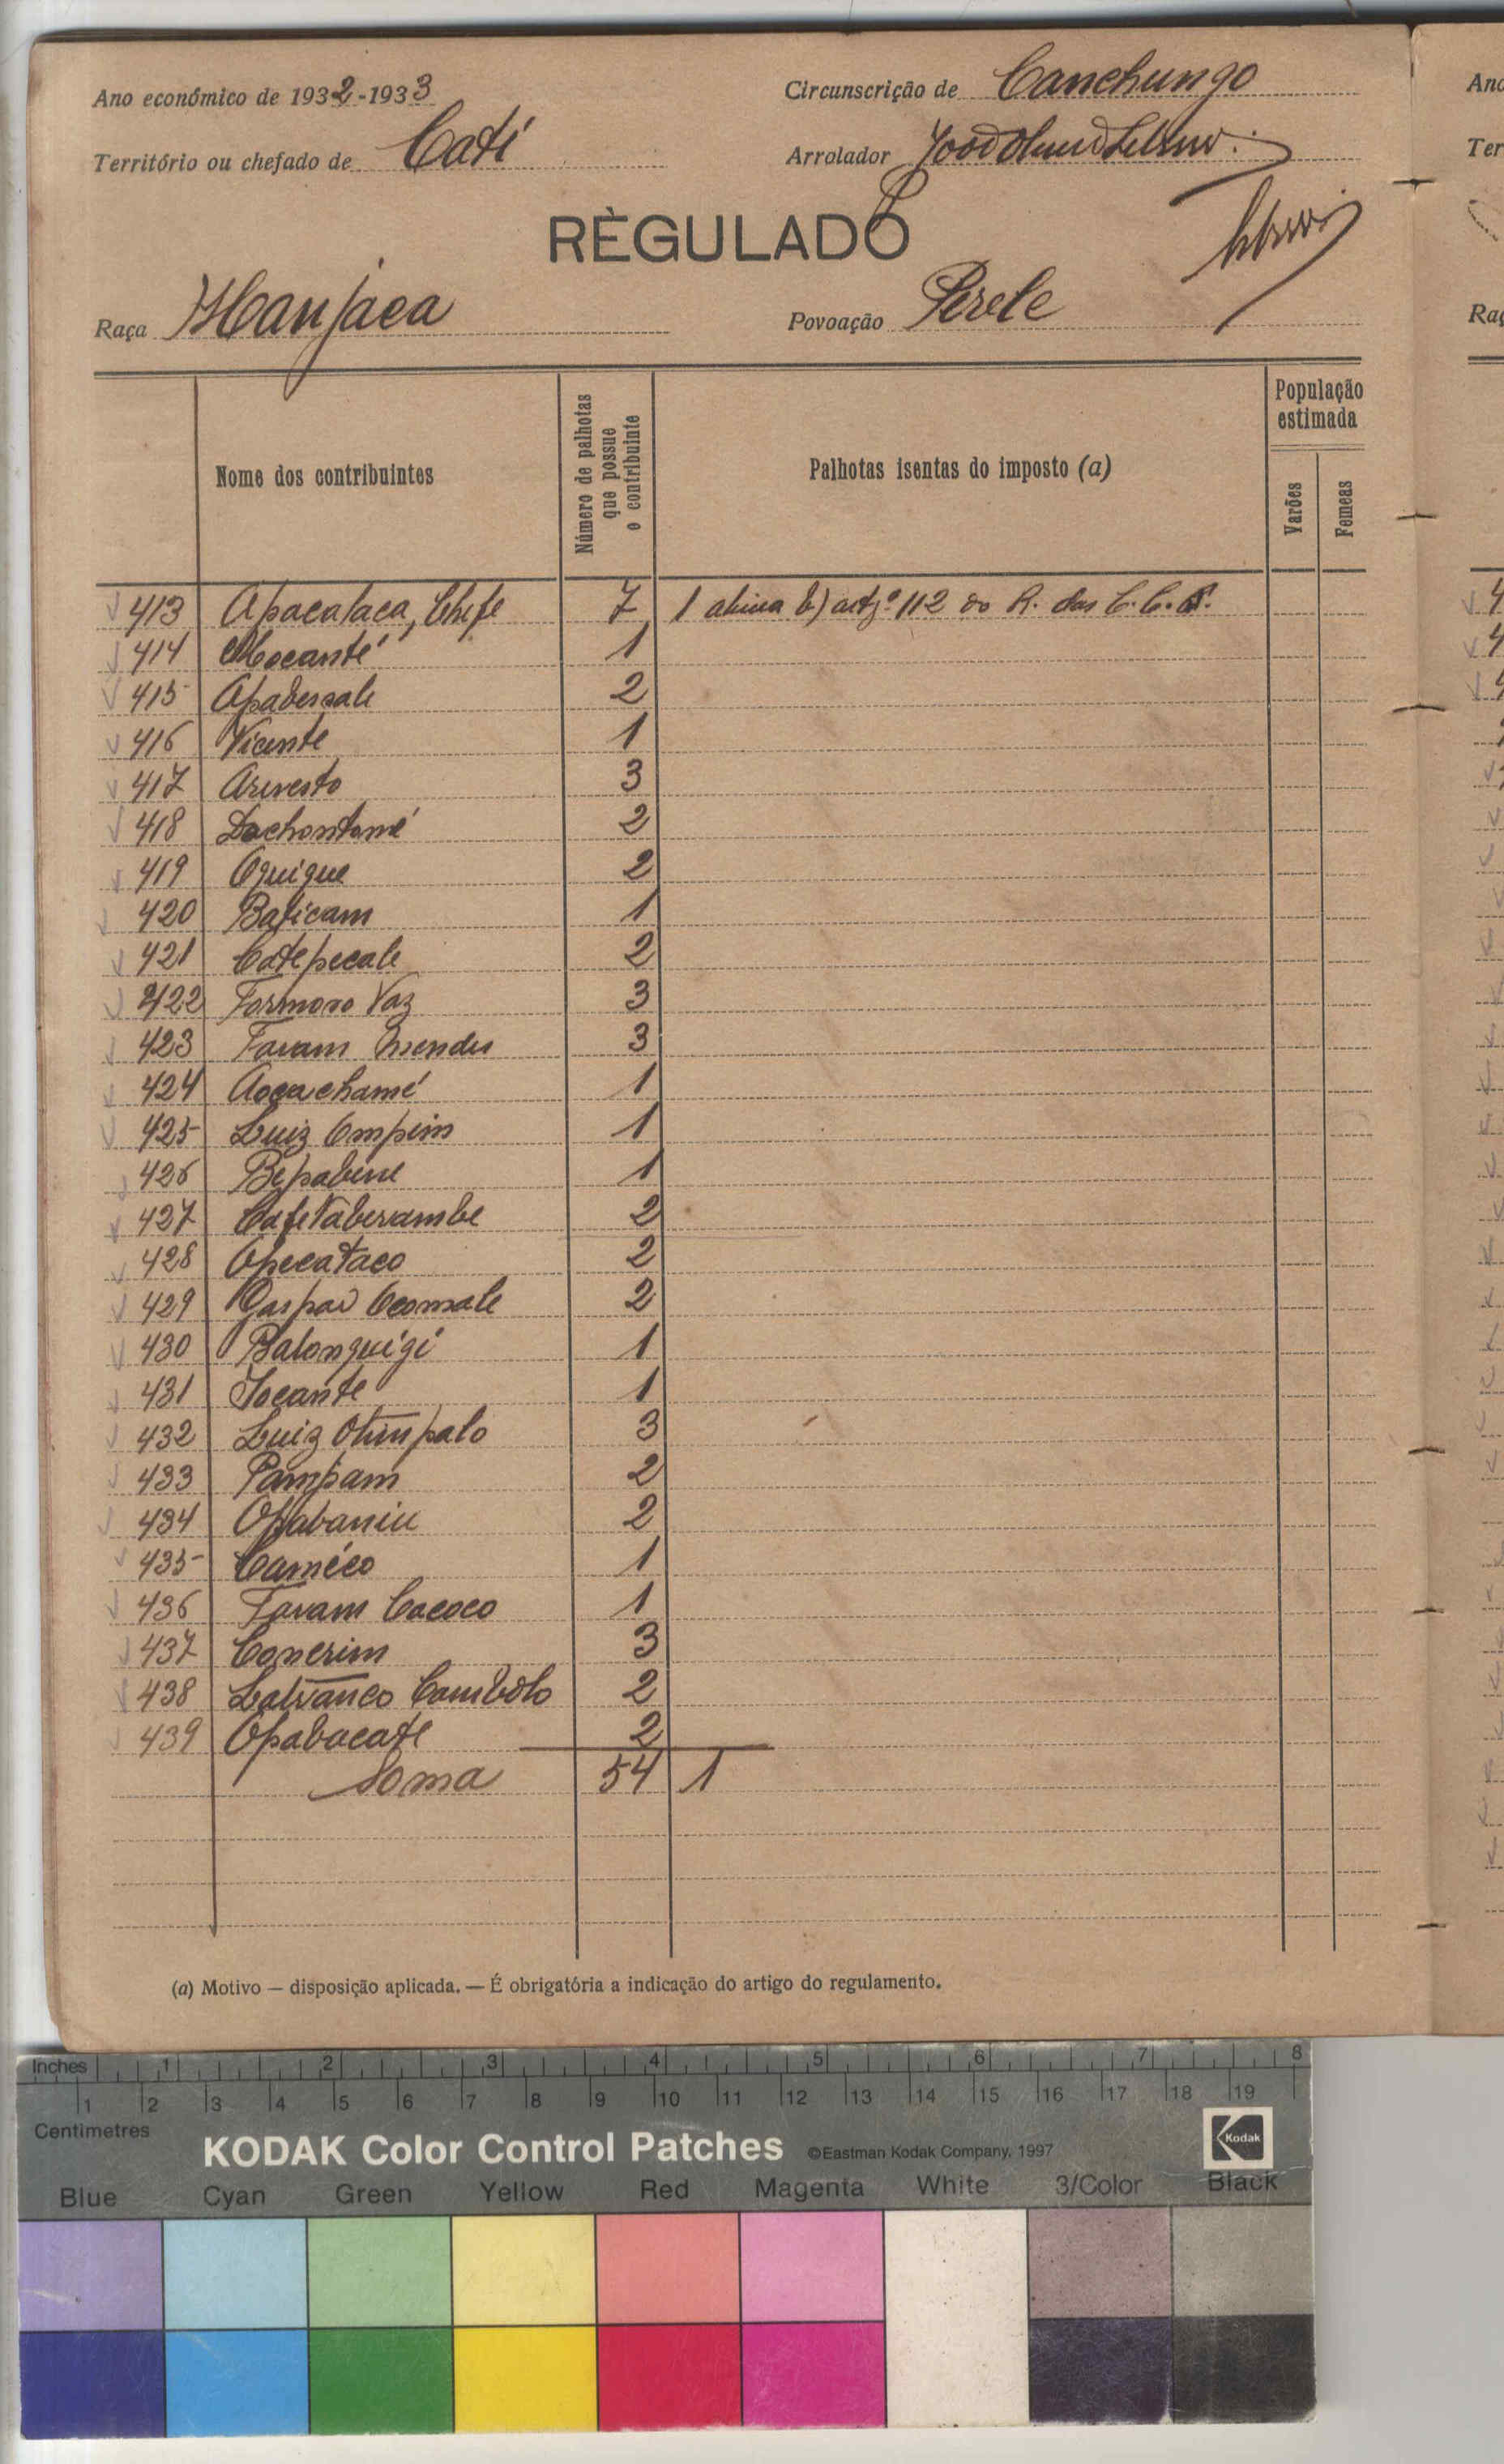 Ano económico de 1932-1933
Circunscrição de Canchungo
Território ou chefado de Cati
Arrolador
RÈGULADO
Raça Manjaca
Povoação Perele
Nome dos contribuintes
Número de palhotas que possue o contribuinte
Palhotas isentas do imposto (a)
População estimada
Varões
Femeas
413 Apacalaca, Chefe 7 1 alinea b) artgº 112 do R. das C.C.I.
414 Mocanté 1
415 Apabersale 2
416 Vicente 1
417 Arivesto 3
418 Dochontomé 2
419 Oquique 2
420 Baticam 1
421 Catepecale 2
422 Formoso Vaz 3
423 Favam Mendes 3
424 Aocachamé 1
425 Luiz Ompim 1
426 Bepabine 1
427 Cafetaberambe 2
428 Opecataco 2
429 Gaspar Ocomale 2
430 Balonguigi 1
431 Jocante 1
432 Luiz Otimpalo 3
433 Pampam 2
434 Opabaniu 2
435 Caméco 1
436 Favam Cacoco 1
437 Conerim 3
438 Latranco Cambolo 2
439 Opabacate 2
Soma 54 1
(a) Motivo — disposição aplicada. — É obrigatória a indicação do artigo do regulamento.
Inches 1 2 3 4 5 6 7 8
1 2 3 4 5 6 7 8 9 10 11 12 13 14 15 16 17 18 19
Centimetres
KODAK Color Control Patches ©Eastman Kodak Company, 1997 Kodak
Blue Cyan Green Yellow Red Magenta White 3/Color Black